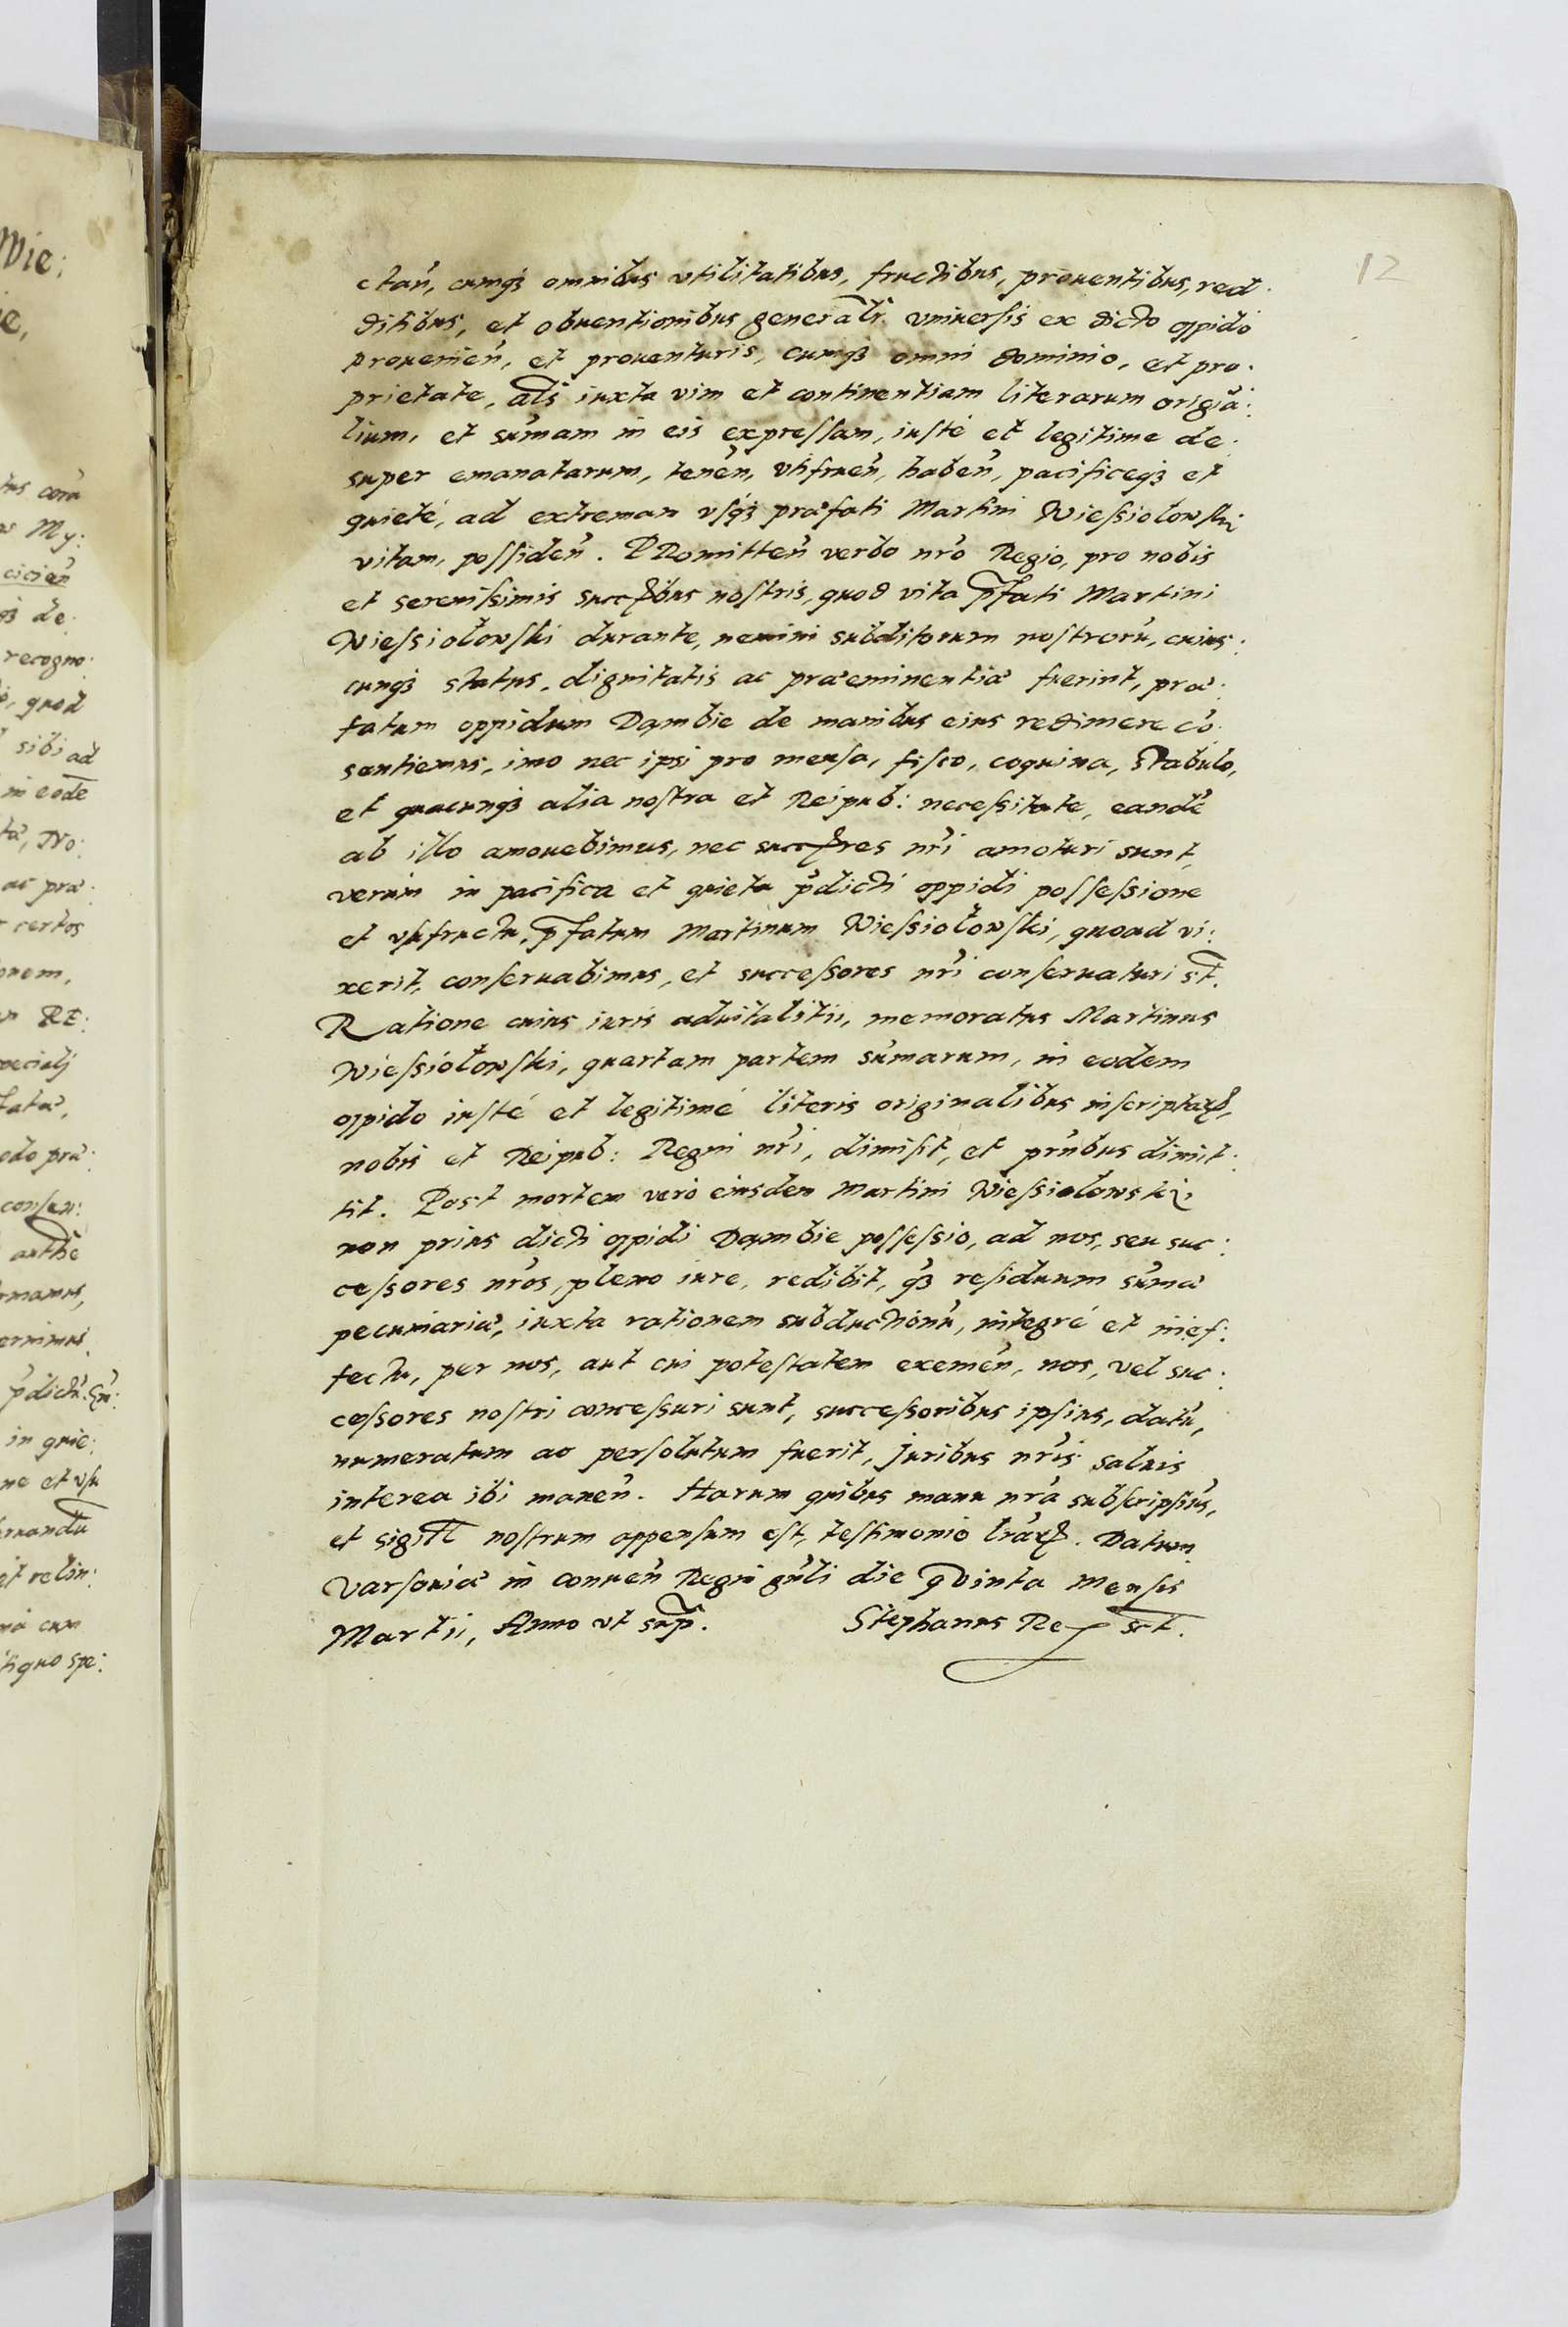 12
ctan̄, cumqȝ omnibus vtilitatibus, fructibus, prouentibus, red.
ditibus, et obuentionibus generalr̄. vniuersis ex dicto oppido
prouenien̄, et prouenturis, cumqȝ omni dominio, et pro.
prietate, al̄s iuxta vim et continentiam literarum origīa:
lium, et sūmam in eis expressam, iustè et legitime de.
super emanatarum, tenen̄, vtifruen̄, haben̄, pacificeqȝ et
quietè, ad extremam vsqȝ præfati Martini Wiessiolowski
vitam, possiden̄. PRomitten̄ verbo nr̄o Regio, pro nobis
et serenissimis succ̄bus nostris, quod vita p̄fati Martini
Wiessiołowski durante, nemini subditorum nostrorū, cuius:
cunqȝ status, dignitatis ac præeminentiæ fuerint, præ.
fatum oppidum Dambie de manibus eius redimere cō.
sentiemus, imo nec ipsi pro mensa, fisco, coquina, stabulo,
et quacunqȝ alia nostra et Reipub: necessitate, eandē
ab illo amouebimus, nec succ̄res nr̄i amoturi sunt,
verùm in pacifica et quieta p̄dicti oppidi possessione
et vsufructu, p̄fatum Martinum Wiessiołowski, quoad vi:
xerit, conseruabimus, et successores nr̄i conseruaturi st̄.
Ratione cuius iuris aduitalitii, memoratus Martinus
Wiessiołowski, quartam partem sūmarum, in eodem
oppido iustè et legitimè literis originalibus inscriptaꝝ,
nobis et Reipub: Regni nr̄i, dimisit, et pn̄tibus dimit:
tit. Post mortem verò eiusdem Martini Wiessiolowski,
non prius dicti oppidi Dambie possessio, ad nos, seu suc:
cessores nr̄os, pleno iure, redibit, qȝ residuum sūmæ
pecuniariæ, iuxta rationem subductionū, integrè et in ef:
fectu, per nos, aut cui potestatem exemen̄, nos, vel suc:
cessores nostri concessuri sunt, successoribus ipsius, datū,
numeratum ac persolutum fuerit, juribus nr̄is saluis
interea ibi manen̄. Harum quibus manu nr̄a subscripsim̄s,
et sigill̄ nostrum appensum est, testimonio lr̄aꝝ. Datum
Varsouiæ in conuen̄ Regni gn̄li die qvinta Mensis
Martii, Anno vt sup̄. Stephanus Rex sst.